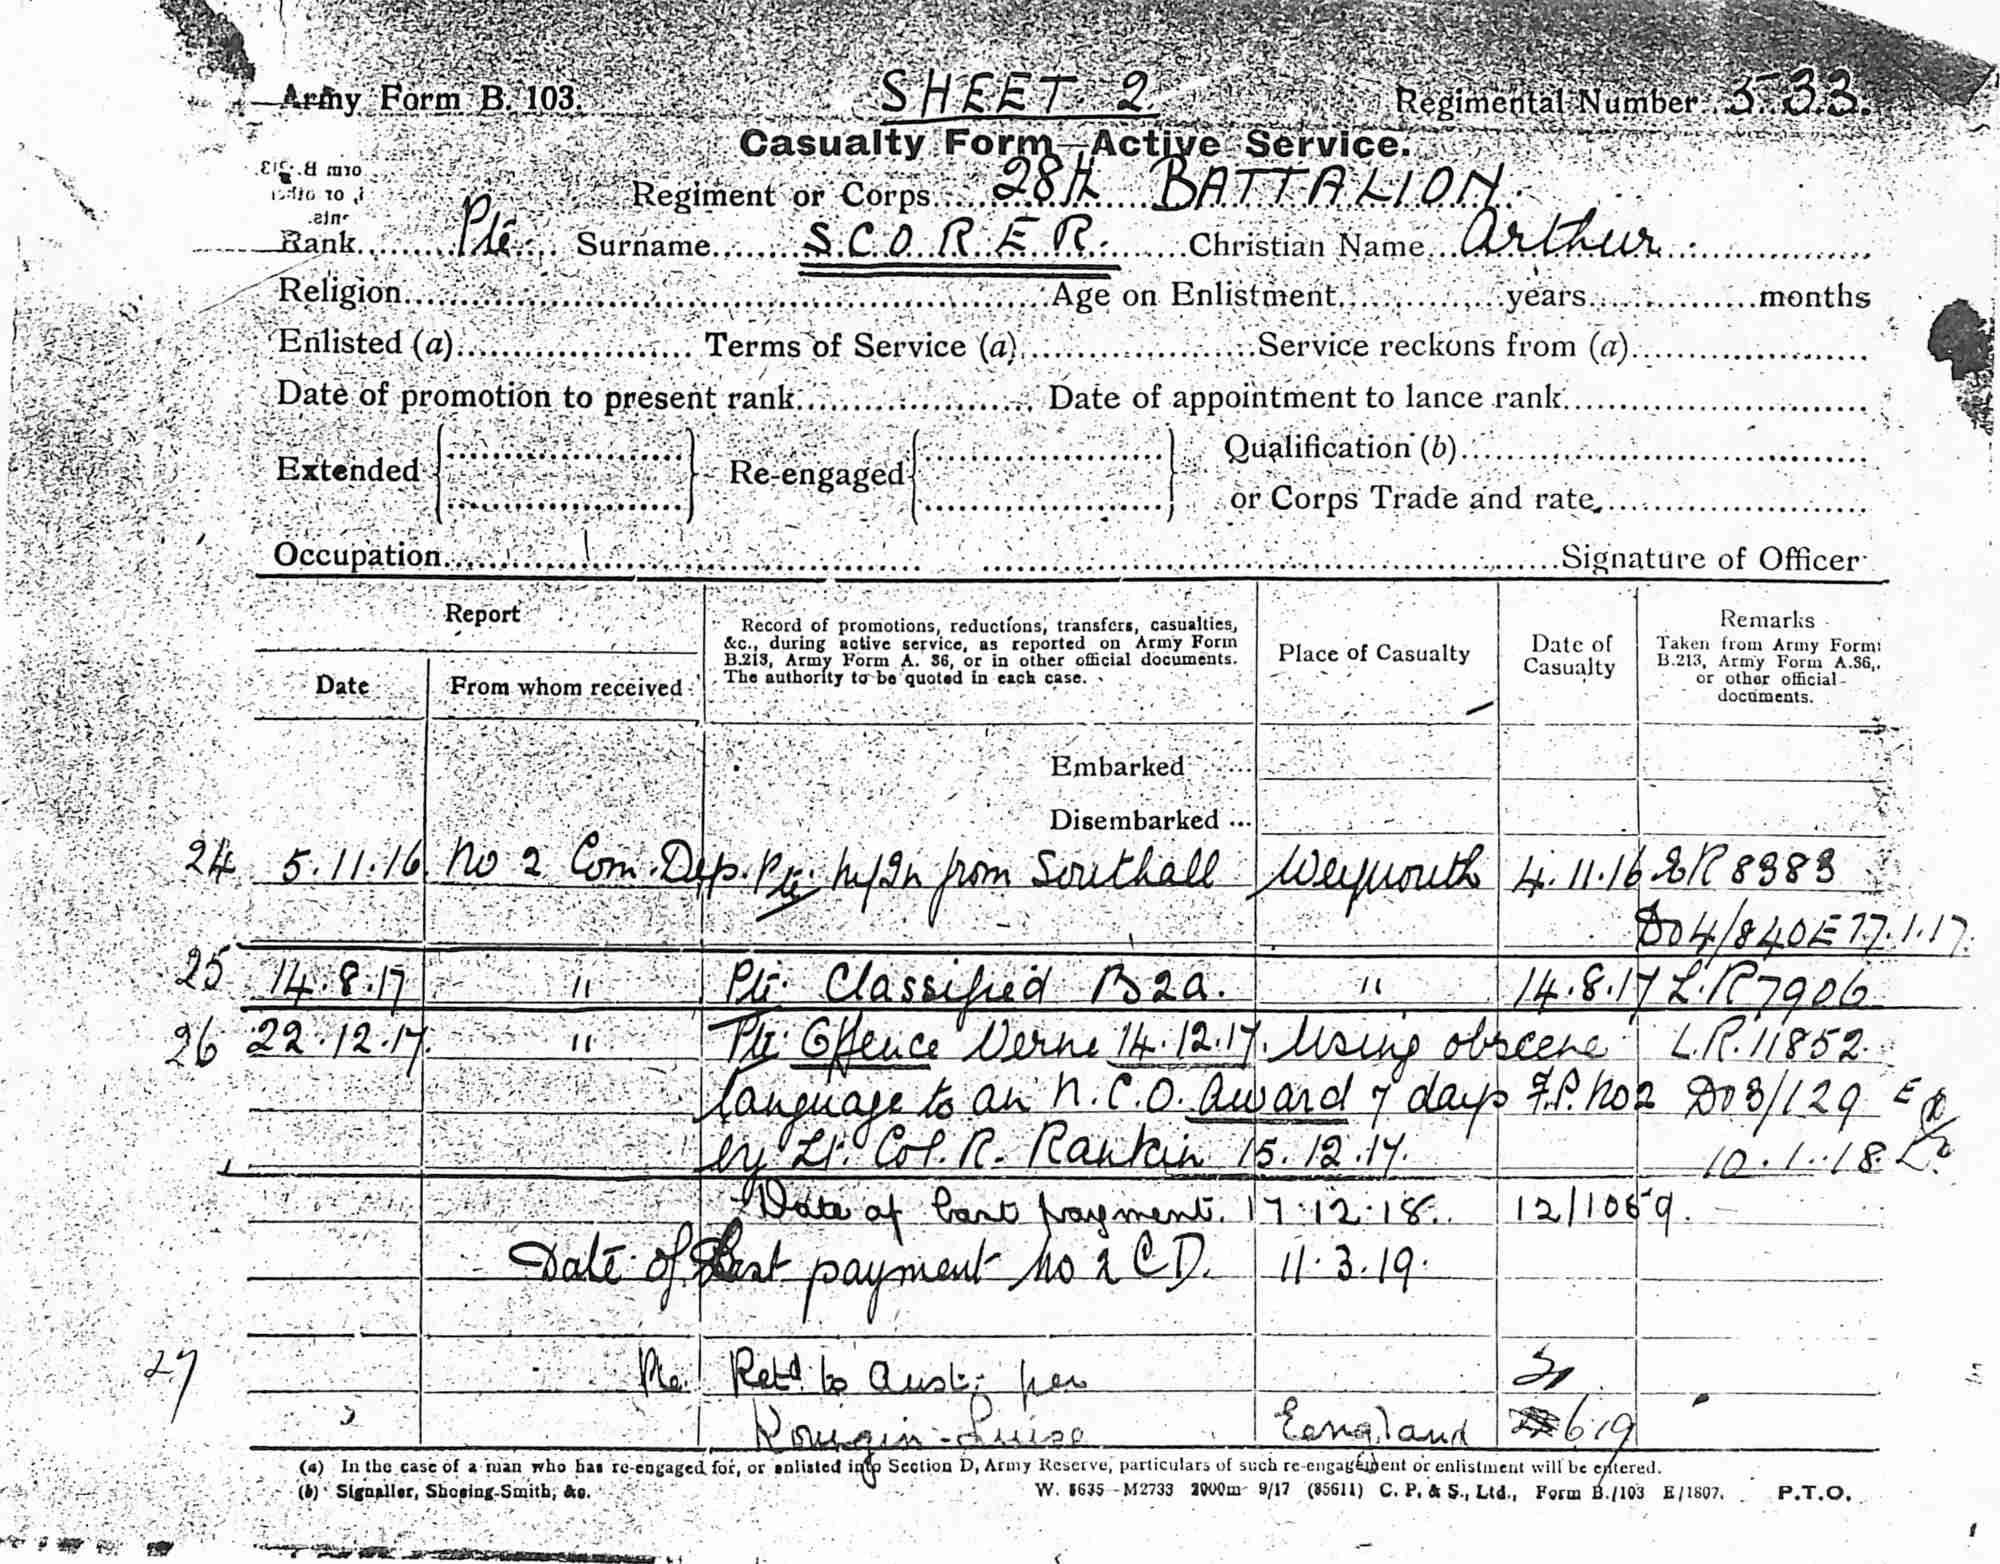 SHEET 2.
Army Form B. 103. Regimental Number 533.
Casualty Form—Active Service.
Regiment or Corps 28th BATTALION.
Rank Pte. Surname SCORER. Christian Name Arthur
Religion Age on Enlistment years months
Enlisted (a) Terms of Service (a) Service reckons from (a)
Date of promotion to present rank Date of appointment to lance rank
Extended Re-engaged Qualification (b)
or Corps Trade and rate
Occupation Signature of Officer
Report
Date
From whom received
Record of promotions, reductions, transfers, casualties,
&c., during active service, as reported on Army Form
B.213, Army Form A. 36, or in other official documents.
The authority to be quoted in each case.
Place of Casualty
Date of
Casualty
Remarks
Taken from Army Form
B.213, Army Form A.36,
or other official
documents.
Embarked
Disembarked ...
24 5.11.16. No 2 Com. Dep. Pte. M/In from Southall Weymouth 4.11.16 ER 8383
DO4/840E 17.1.17.
25 14.8.17 " Pte. Classified B2a. " 14.8.17 L.R 7906
26 22.12.17. " Pte. Offence Verne 14.12.17. Using obscene L.R. 11852.
language to an N.C.O. Award 7 days F.P. No 2 DO3/129 E
by Lt. Col. R. Rankin 15.12.17. 10.1.18
Date of last payment. 17.12.18. 12/1069.
Date of Last payment No 2 C D. 11.3.19.
27 Pte. Retd. to Aust. per
Konigin-Luise England 6.19
(a) In the case of a man who has re-engaged for, or enlisted into Section D, Army Reserve, particulars of such re-engagement or enlistment will be entered.
(b) Signaller, Shoeing-Smith, &c. W. 8635—M2733 2000m 9/17 (85611) C. P. & S., Ltd., Form B./103 E/1807. P.T.O.